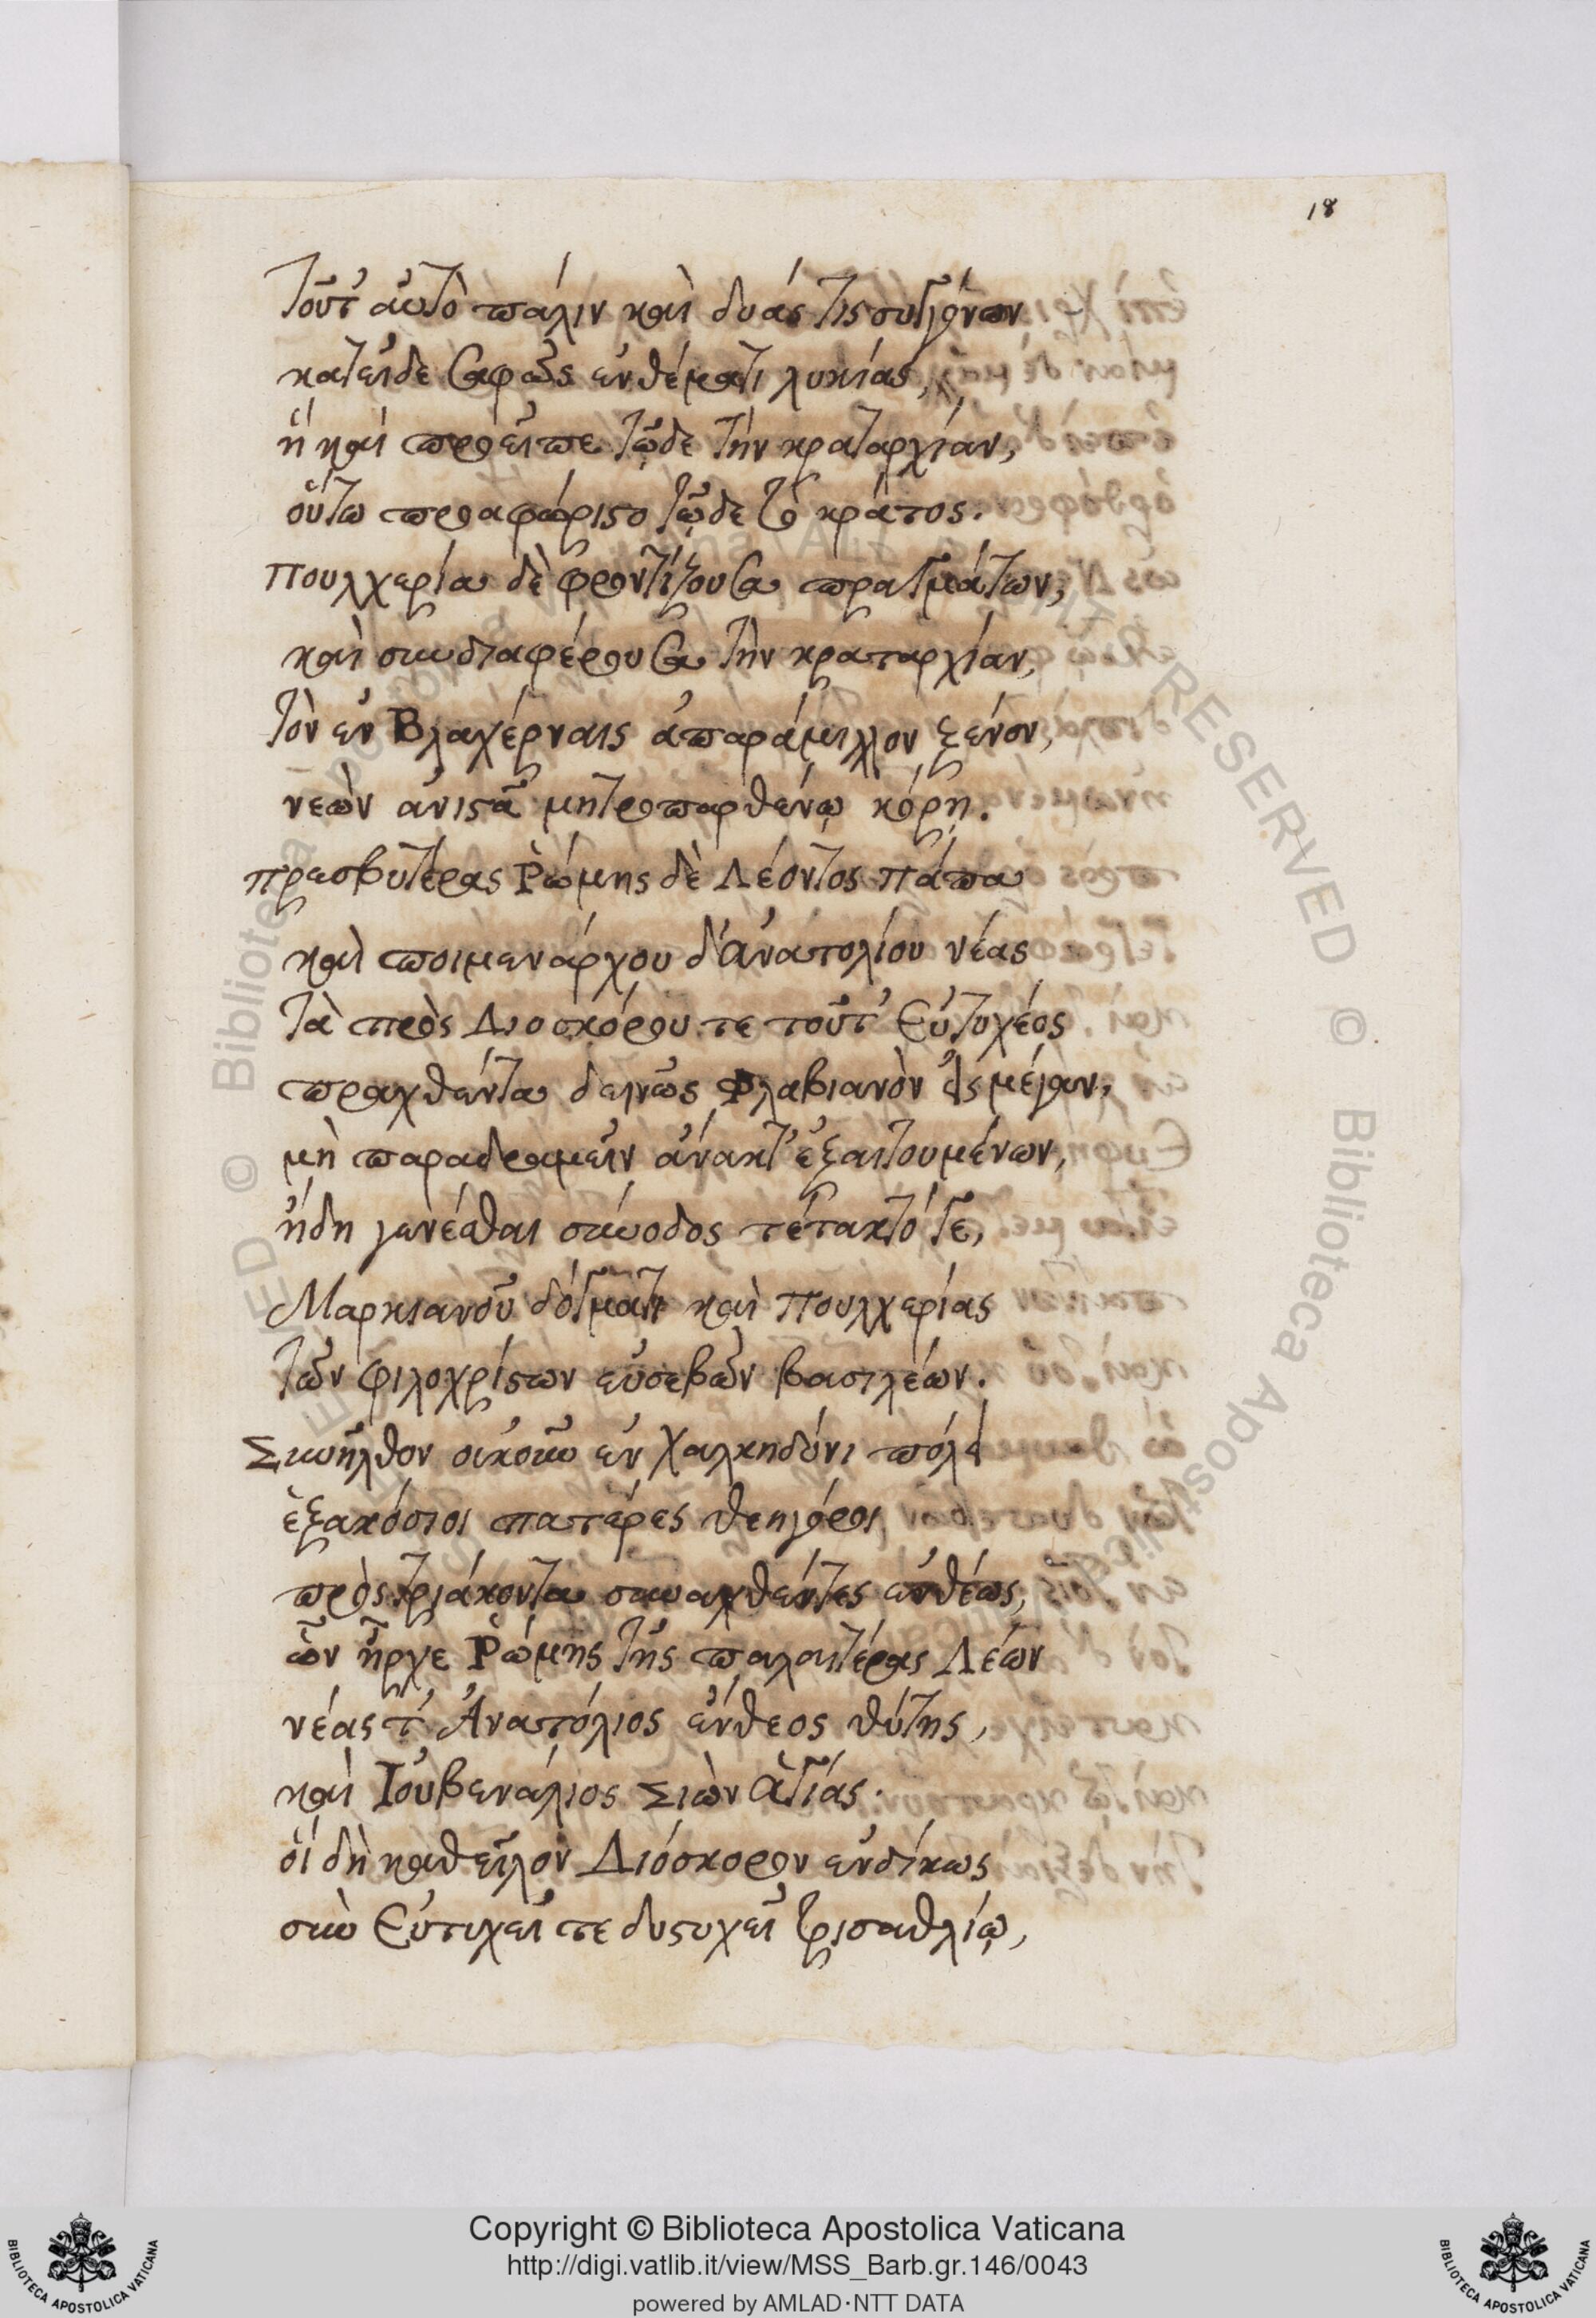 18
τοῦτ' αὐτὸ πάλιν καὶ δυάς τις συγγόνων
κατεῖδε σαφῶς ἐν θέματι λυκίας,
ἣ καὶ προεῖπε τῷδε τὴν κραταρχίαν,
οὕτω προαφώριστο τῷδε τὸ κράτος.
Πουλχερία δὲ φροντίζουσα πραγμάτων,
καὶ συνδιαφέρουσα τὴν κραταρχίαν,
τὸν ἐν Βλαχέρναις ἀπαράμιλλον ξένον,
νεὼν ἀνιστᾶ μητροπαρθένῳ κόρῃ.
πρεσβυτέρας Ῥώμης δὲ Λέοντος πάπα
καὶ ποιμενάρχου δ' Ἀνατολίου νέας
τὰ πρὸς Διοσκόρου τε τοῦτ' Εὐτυχέος
πραχθέντα δεινῶς Φλαβιανὸν εἰς μέγαν,
μὴ παραδραμεῖν ἄνακτ' ἐξαιτουμένων,
ἤδη γενέσθαι σύνοδος τέτακτό γε,
Μαρκιανοῦ δόγματι καὶ Πουλχερίας
τῶν φιλοχρίστων εὐσεβῶν βασιλέων.
Συνῆλθον οὐκοῦν ἐν Χαλκηδόνι πόλει
ἑξακόσιοι πατέρες θεηγόροι
πρὸς τριάκοντα συναχθέντες ἐνθέως,
ὧν ἦρχε Ῥώμης τῆς παλαιτέρας Λέων
νέας τ' Ἀνατόλιος ἔνθεος θύτης,
καὶ Ἰουβενάλιος Σιὼν ἁγίας.
οἳ δὴ καθεῖλον Διόσκορον ἐνδίκως
σὺν Εὐτυχεῖ τε δυστυχεῖ τρισαθλίῳ,
Copyright © Biblioteca Apostolica Vaticana
http://digi.vatlib.it/view/MSS_Barb.gr.146/0043
powered by AMLAD·NTT DATA
BIBLIOTECA APOSTOLICA VATICANA
BIBLIOTECA APOSTOLICA VATICANA